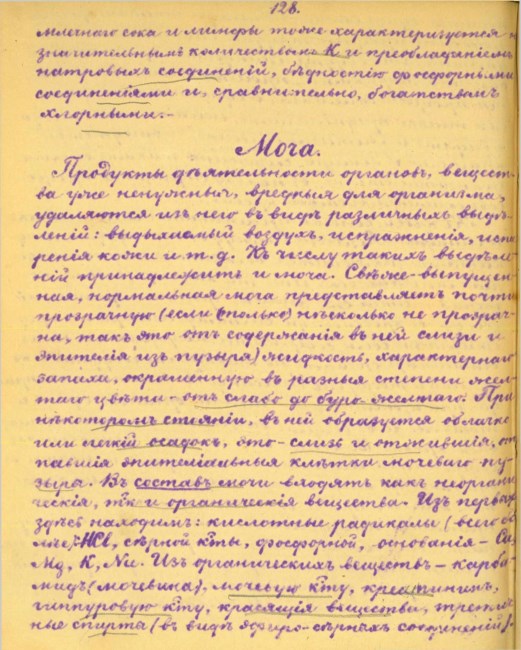 128.
млечнаго сока и лимфы тоже характеризуется
значительнымъ количествомъ К и преобладаніемъ
натровыхъ соединеній, бѣдностію фосфорными
соединеніями и, сравнительно, богатствомъ
хлорными.-
Моча.
Продукты дѣятельности органовъ, вещест-
ва уже ненужныя, вредныя для организма,
удаляются изъ него въ видѣ различныхъ выдѣ-
леній: выдыхаемый воздухъ, испражненія, испа-
ренія кожи и т.д. Къ числу такихъ выдѣле-
ній принадлежитъ и моча. Свѣже-выпущен-
ная, нормальная моча представляетъ почти
прозрачную (если (только) нѣсколько не прозрач-
на, такъ это отъ содержанія въ ней слизи и
эпителія изъ пузыря) жидкость, характернаго
запаха, окрашенную въ разныя степени жел-
таго цвѣта - отъ слабо до буро-желтаго. При
нѣкоторомъ стояніи, въ ней образуется облачко
или легкій осадокъ, это - слизь и отжившія, от-
павшія эпителіальныя клѣтки мочеваго пу-
зыря. Въ составъ мочи входятъ какъ неоргани-
ческія, тък и органическія вещества. Изъ первыхъ
здѣсь находимъ: кислотные радикалы (всего бо-
лѣе)-HCl, сѣрной к̃ты, фосфорной, основанія - Ca,
Mg, K, Na. Изъ органическихъ веществъ - карба-
мидъ (мочевина), мочевую к̃ту, креатининъ,
гиппуровую к̃ту, красящія вещества,
спирта (въ видѣ эфиро-сѣрныхъ соединеній).